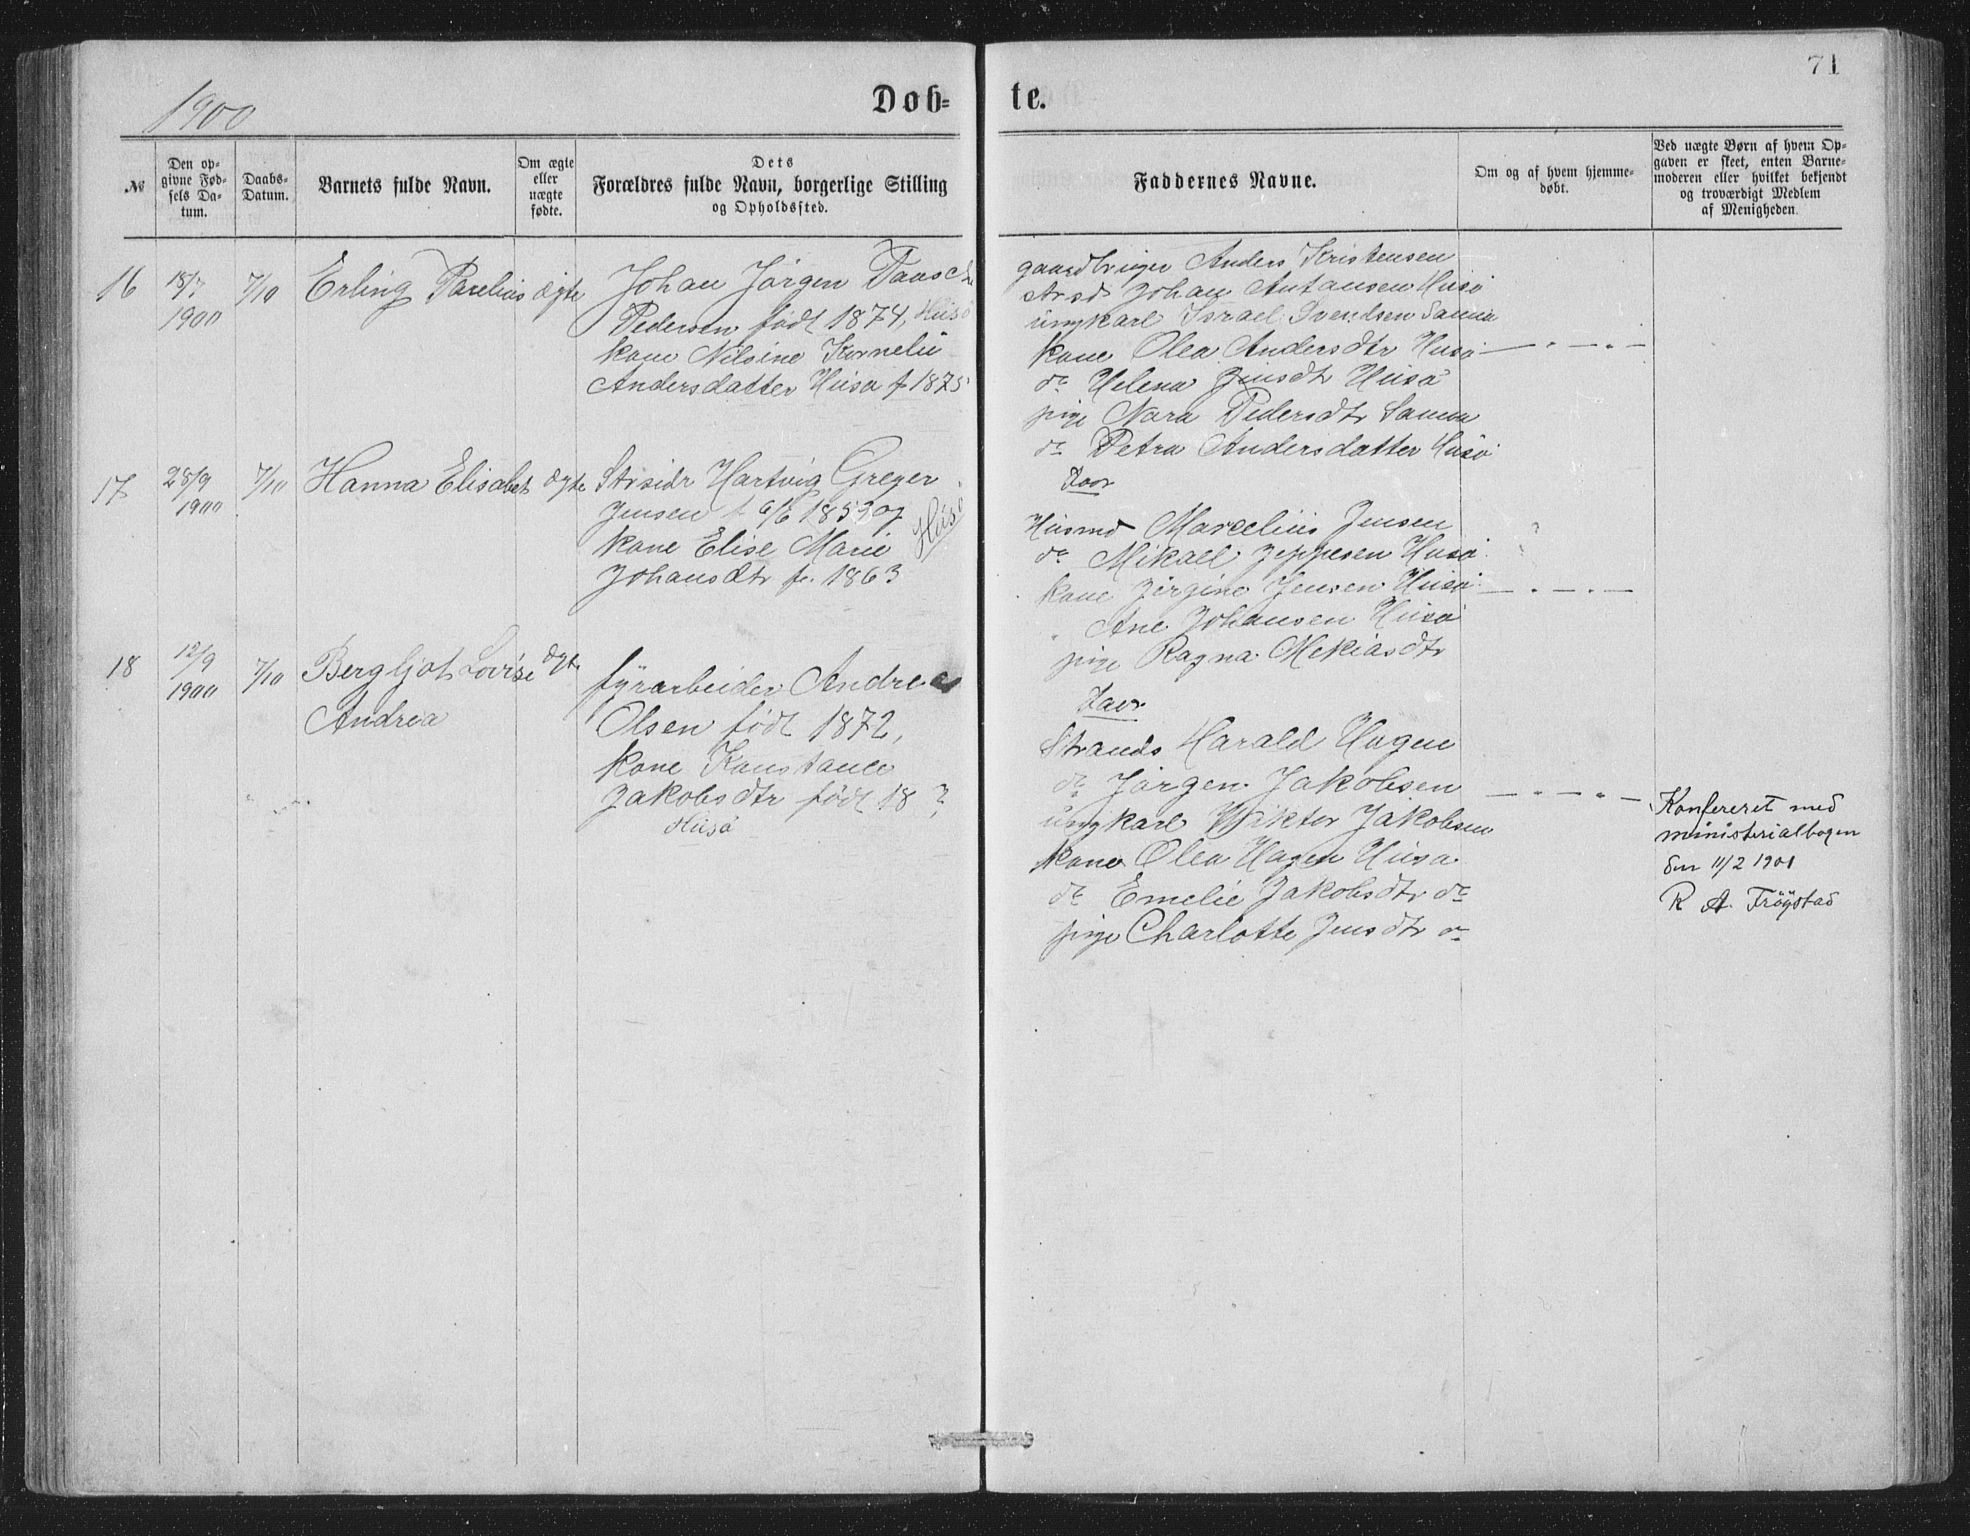 1900
Døb-
te.
71
№
Den op-
givne Fød-
sels Da-
tum.
Daabs-
Datum.
Barnets fulde Navn.
Om ægte
eller
uægte
fødte.
Dets
Forældres fulde Navn, borgerlige Stilling
og Opholdssted.
Faddernes Navne.
Om og af hvem hjemme-
døbt.
Ved uægte Børn af hvem Op-
gaven er skeet, enten Barne-
moderen eller hvilket bekjendt
og troværdigt Medlem
af Menigheden.
16
18/7
1900
7/10
Erling Parelius
ægte
Johan Jörgen
Pedersen født 1874, Husö
kone Nilsine Kornelie
Andersdatter Husö f 1875
gaardbruger Anders Kristensen
Johan Antonsen Husö
ungkarl Israel Svendsen Sanna
kone Olea Andersdtr Husö
do Helena Jensdt Husö
pige Nora Pedersdtr Sanna
do Petra Andersdatter Husö
17
28/9
1900
7/10
Hanna Elisabet
ægte
Strsidr Hartvig Greger
Jensen f 6/6 1853 og
kone Elise Marie
Johansdtr f. 1863
Husö
Faor
Husmd Marcelius Jensen
do Mikael Jeppesen Husö
kone Jörgine Jensen Husö
" Ane Johansen Husö
pige Ragna Mekiasdtr
18
12/9
1900
7/10
Bergljot Lovise
Andrea
ægte
fyrarbeider Andreas
Olsen født 1872,
kone Konstance
Jakobsdtr født 18 ?
Husö
Faor
Strands Harald Hagen
do Jörgen Jakobsen
ungkarl Viktor Jakobsen
kone Olea Hagen Husö
do Emelie Jakobsdtr do
pige Charlotte Jensdtr do
Konfereret med
ministerialbogen
den 11/2 1901
R A. Trögstad